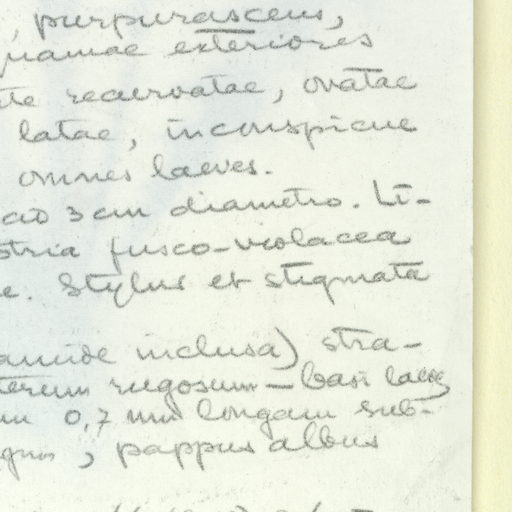 , purpurascens,
squamae exteriores
recurvatae, ovatae
latae, inconspicue
omnes laeves.
3 cm diametro. Li-
fusco-violacea
e. Stylus et stigmata
inclusa) stra-
rugosum - basi laeve
0,7 mm longam sub-
, pappus albus